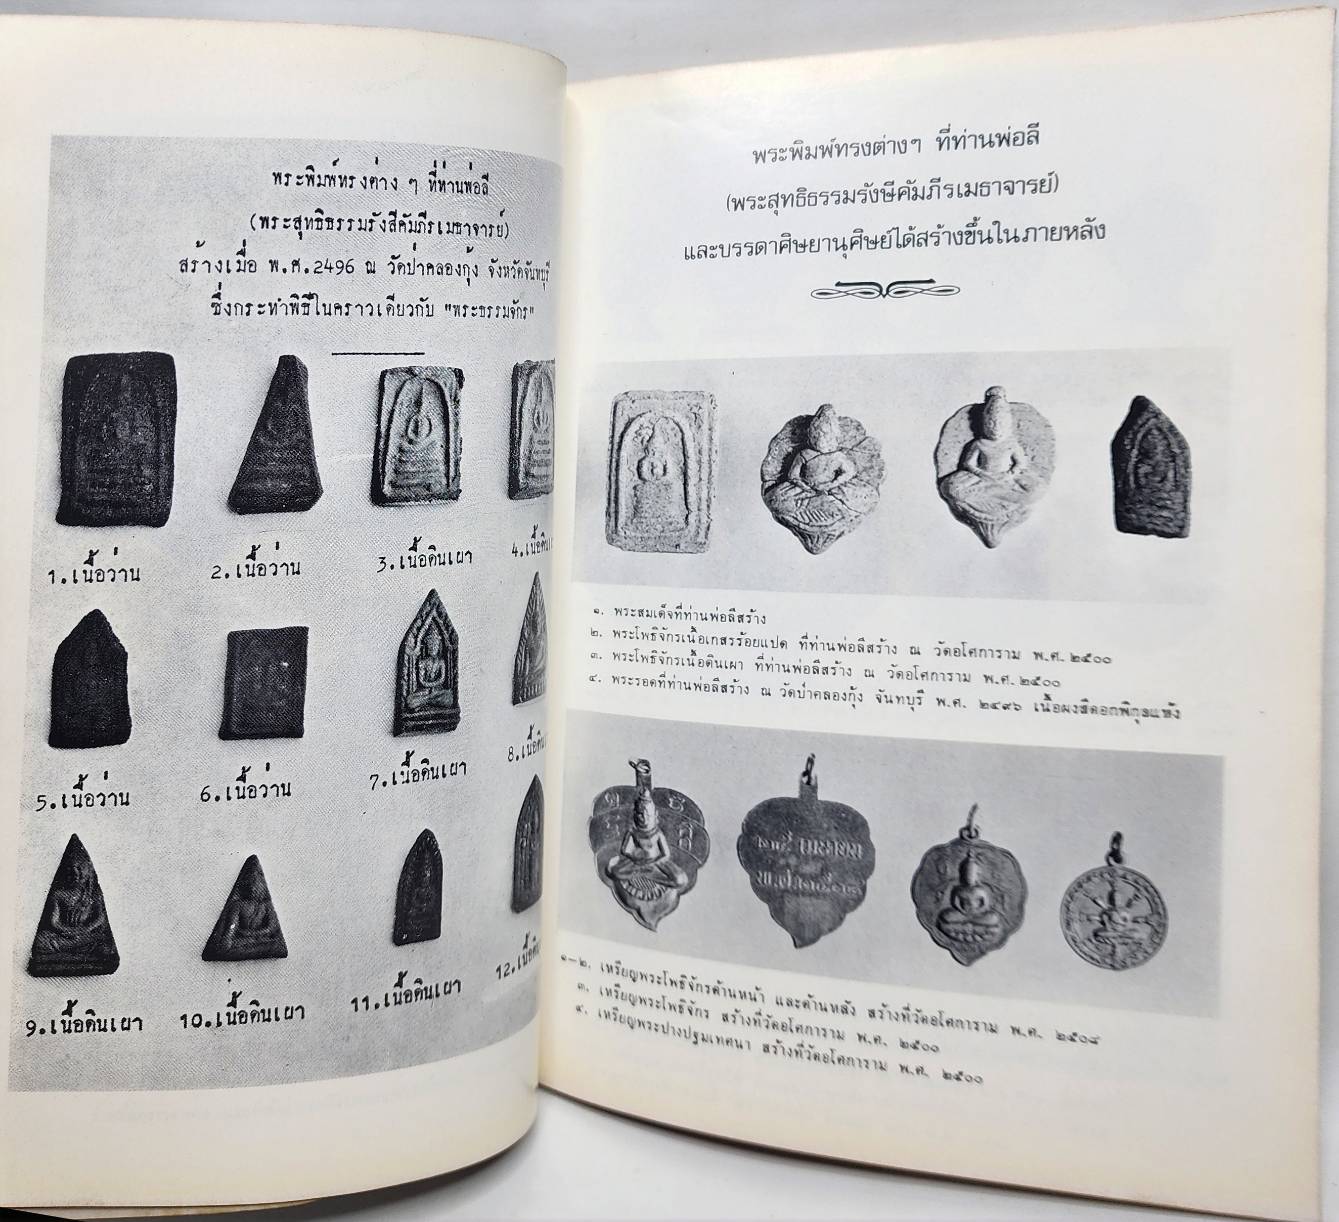 พระพิมพ์ทรงต่าง ๆ ที่ท่านพ่อลี
(พระสุทธิธรรมรังสีคัมภีรเมธาจารย์)
สร้างเมื่อ พ.ศ.2496 ณ วัดป่าคลองกุ้ง จังหวัดจันทบุรี
ซึ่งกระทำพิธีในคราวเดียวกับ "พระธรรมจักร"
1.เนื้อว่าน
2.เนื้อว่าน
3.เนื้อดินเผา
4.เนื้อดิน
5.เนื้อว่าน
6.เนื้อว่าน
7.เนื้อดินเผา
8.เนื้อดิน
9.เนื้อดินเผา
10.เนื้อดินเผา
11.เนื้อดินเผา
12.เนื้อดิน
พระพิมพ์ทรงต่างๆ ที่ท่านพ่อลี
(พระสุทธิธรรมรังษีคัมภีรเมธาจารย์)
และบรรดาศิษยานุศิษย์ได้สร้างขึ้นในภายหลัง
๑. พระสมเด็จที่ท่านพ่อลีสร้าง
๒. พระโพธิจักรเนื้อเกสรร้อยแปด ที่ท่านพ่อลีสร้าง ณ วัดอโศการาม พ.ศ. ๒๕๐๐
๓. พระโพธิจักรเนื้อดินเผา ที่ท่านพ่อลีสร้าง ณ วัดอโศการาม พ.ศ. ๒๕๐๐
๔. พระรอดที่ท่านพ่อลีสร้าง ณ วัดป่าคลองกุ้ง จันทบุรี พ.ศ. ๒๔๙๖ เนื้อผงสีดอกพิกุลแห้ง
๑-๒. เหรียญพระโพธิจักรด้านหน้า และด้านหลัง สร้างที่วัดอโศการาม พ.ศ. ๒๕๐๘
๓. เหรียญพระโพธิจักร สร้างที่วัดอโศการาม พ.ศ. ๒๕๐๐
๔. เหรียญพระปางปฐมเทศนา สร้างที่วัดอโศการาม พ.ศ. ๒๕๐๐